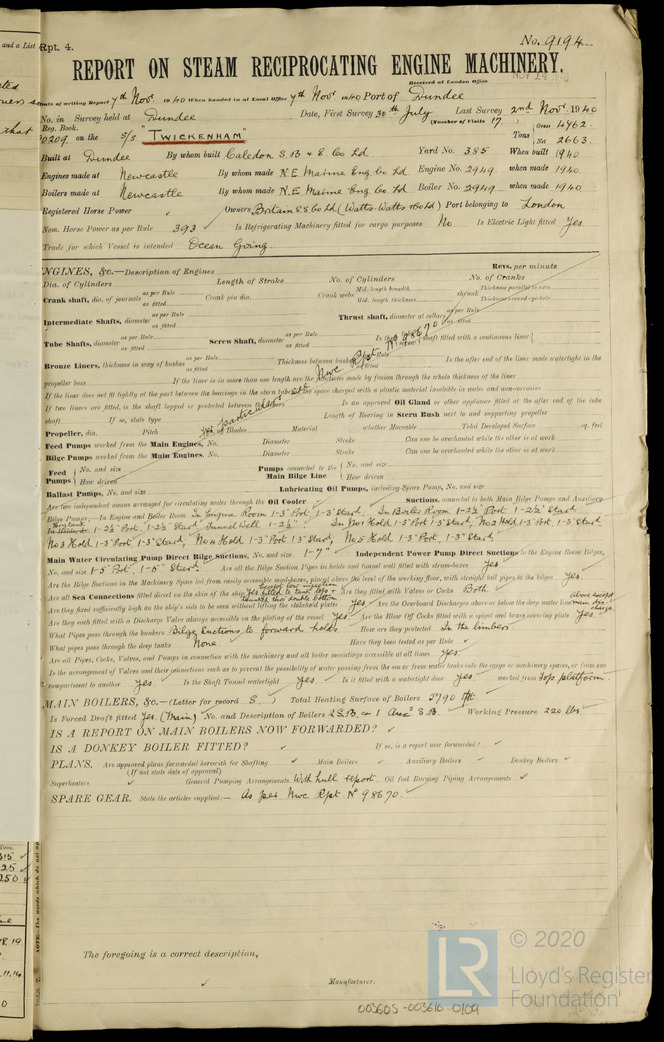 Rpt. 4.
No. 9194.
REPORT ON STEAM RECIPROCATING ENGINE MACHINERY.
Received at London Office
Date of writing Report 7th Novr. 1940 When handed in at Local Office 7th Novr 1940 Port of Dundee
No. in Survey held at Dundee Date, First Survey 30th July Last Survey 2nd Novr. 1940
Reg. Book. (Number of Visits 17.)
on the S/S "TWICKENHAM" Tons Gross 4762. Net 2663.
Built at Dundee By whom built Caledon S.B & E. Co Ld. Yard No. 385 When built 1940
Engines made at Newcastle By whom made N.E. Marine Eng. Co Ld Engine No. 2949 when made 1940.
Boilers made at Newcastle By whom made N.E. Marine Eng. Co Ld Boiler No. 2949 when made 1940.
Registered Horse Power Owners Britain S.S. Co Ld (Watts-Watts & Co Ld) Port belonging to London
Nom. Horse Power as per Rule 393 Is Refrigerating Machinery fitted for cargo purposes No Is Electric Light fitted Yes.
Trade for which Vessel is intended Ocean Going.
ENGINES, &c.—Description of Engines Revs. per minute
Dia. of Cylinders Length of Stroke No. of Cylinders No. of Cranks
Crank shaft, dia. of journals as per Rule as fitted Crank pin dia. Crank webs Mid. length breadth Mid. length thickness shrunk Thickness parallel to axis Thickness around eye-hole
Intermediate Shafts, diameter as per Rule as fitted Thrust shaft, diameter at collars as per Rule as fitted
Tube Shafts, diameter as per Rule as fitted Screw Shaft, diameter as per Rule as fitted Is the shaft fitted with a continuous liner
Bronze Liners, thickness in way of bushes as per Rule as fitted Thickness between bushes as per Rule as fitted Is the after end of the liner made watertight in the
propeller boss If the liner is in more than one length are the junctions made by fusion through the whole thickness of the liner
If the liner does not fit tightly at the part between the bearings in the stern tube, is the space charged with a plastic material insoluble in water and non-corrosive
If two liners are fitted, is the shaft lapped or protected between the liners Is an approved Oil Gland or other appliance fitted at the after end of the tube
shaft If so, state type Length of Bearing in Stern Bush next to and supporting propeller
Propeller, dia. Pitch No. of Blades Material whether Moveable Total Developed Surface sq. feet
Feed Pumps worked from the Main Engines, No. Diameter Stroke Can one be overhauled while the other is at work
Bilge Pumps worked from the Main Engines, No. Diameter Stroke Can one be overhauled while the other is at work
Feed Pumps No. and size How driven Pumps connected to the Main Bilge Line No. and size How driven
Ballast Pumps, No. and size Lubricating Oil Pumps, including Spare Pump, No. and size
Are two independent means arranged for circulating water through the Oil Cooler Suctions, connected to both Main Bilge Pumps and Auxiliary
Bilge Pumps;—In Engine and Boiler Room In Engine Room 1-3" Port 1-3" Start, In Boiler Room 1-2½" Port 1-2½" Start
1-2½" Port 1-2½" Start Tunnel Well 1-2½". In No1 Hold 1-3" Port 1-3" Start, No2 Hold 1-3" Port 1-3" Start
No 3 Hold 1-3" Port 1-3" Start, No 4 Hold 1-3" Port 1-3" Start No 5 Hold 1-3" Port 1-3" Start
Main Water Circulating Pump Direct Bilge Suctions, No. and size 1-7" Independent Power Pump Direct Suctions to the Engine Room Bilges,
No. and size 1-5" Port, 1-5" Start. Are all the Bilge Suction Pipes in holds and tunnel well fitted with strum-boxes Yes
Are the Bilge Suctions in the Machinery Space led from easily accessible mud-boxes, placed above the level of the working floor, with straight tail pipes to the bilges Yes.
Are all Sea Connections fitted direct on the skin of the ship Yes except low injection fitted to tank top & Are they fitted with Valves or Cocks Both
Are they fixed sufficiently high on the ship's side to be seen without lifting the stokehold plates Yes Are the Overboard Discharges above or below the deep water line above except main dis-charge.
Are they each fitted with a Discharge Valve always accessible on the plating of the vessel Yes Are the Blow Off Cocks fitted with a spigot and brass covering plate Yes
What Pipes pass through the bunkers Bilge Suctions to forward holds How are they protected In the limbers.
What pipes pass through the deep tanks None. Have they been tested as per Rule
Are all Pipes, Cocks, Valves, and Pumps in connection with the machinery and all boiler mountings accessible at all times Yes.
Is the arrangement of Valves and their connections such as to prevent the possibility of water passing from the sea or from water tanks into the cargo or machinery spaces, or from one
compartment to another Yes Is the Shaft Tunnel watertight Yes. Is it fitted with a watertight door Yes worked from Top platform
MAIN BOILERS, &c.—(Letter for record S.) Total Heating Surface of Boilers 5790
Is Forced Draft fitted Yes. (Main) No. and Description of Boilers 2 S.B. & 1 Auxy S.B. Working Pressure 220 lbs.
IS A REPORT ON MAIN BOILERS NOW FORWARDED?
IS A DONKEY BOILER FITTED? If so, is a report now forwarded?
PLANS. Are approved plans forwarded herewith for Shafting Main Boilers Auxiliary Boilers Donkey Boilers
(If not state date of approval)
Superheaters General Pumping Arrangements With hull report. Oil fuel Burning Piping Arrangements
SPARE GEAR. State the articles supplied:— As per Nwc Rpt No 98670.
The foregoing is a correct description,
Manufacturer.
LR
© 2020
Lloyd's Register
Foundation
003605-003610-0109